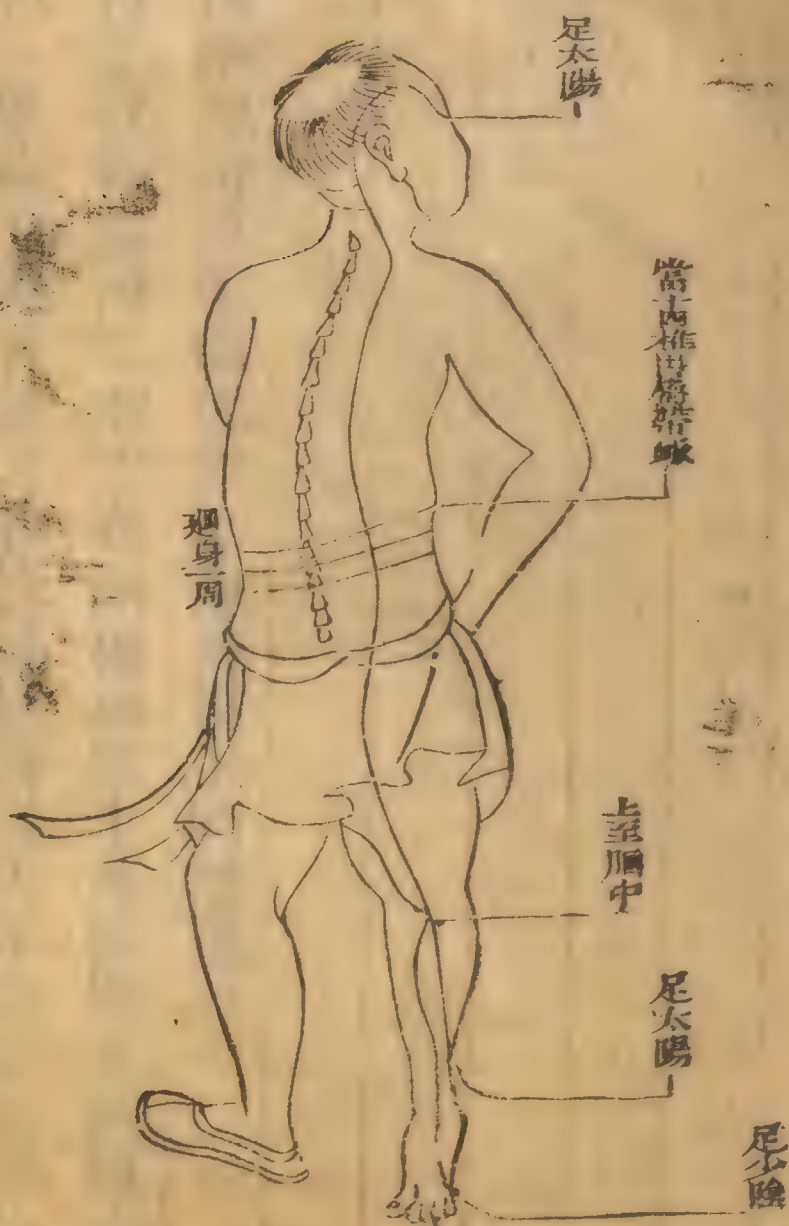 足太陽
當十四椎出屬帶脈
廻身一周
上至膕中
足太陽
足少陰